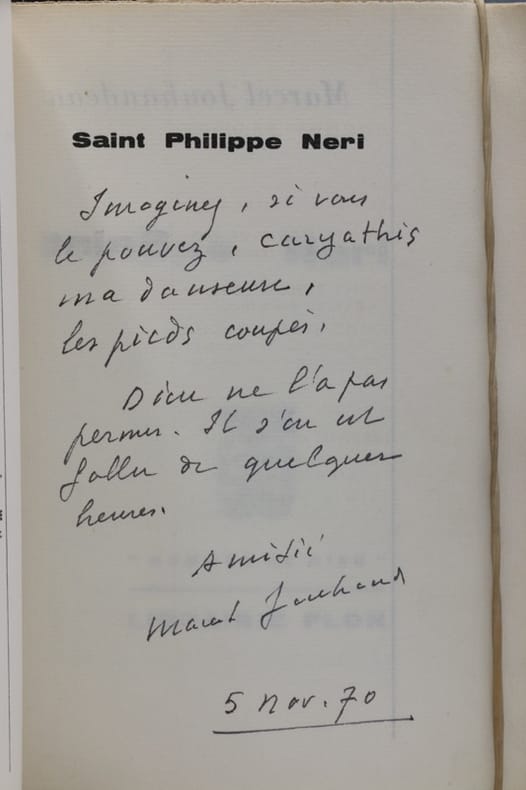 Marcel Jouhandeau
Saint Philippe Neri
Imaginez, si vous
le pouvez, Caryathis
ma danseuse,
les pieds coupés.
Dieu ne l'a pas
permis. Il s'en est
fallu de quelques
heures.
Amitié
Marcel Jouhand
5 Nov. 70
LIBRAIRIE PLON